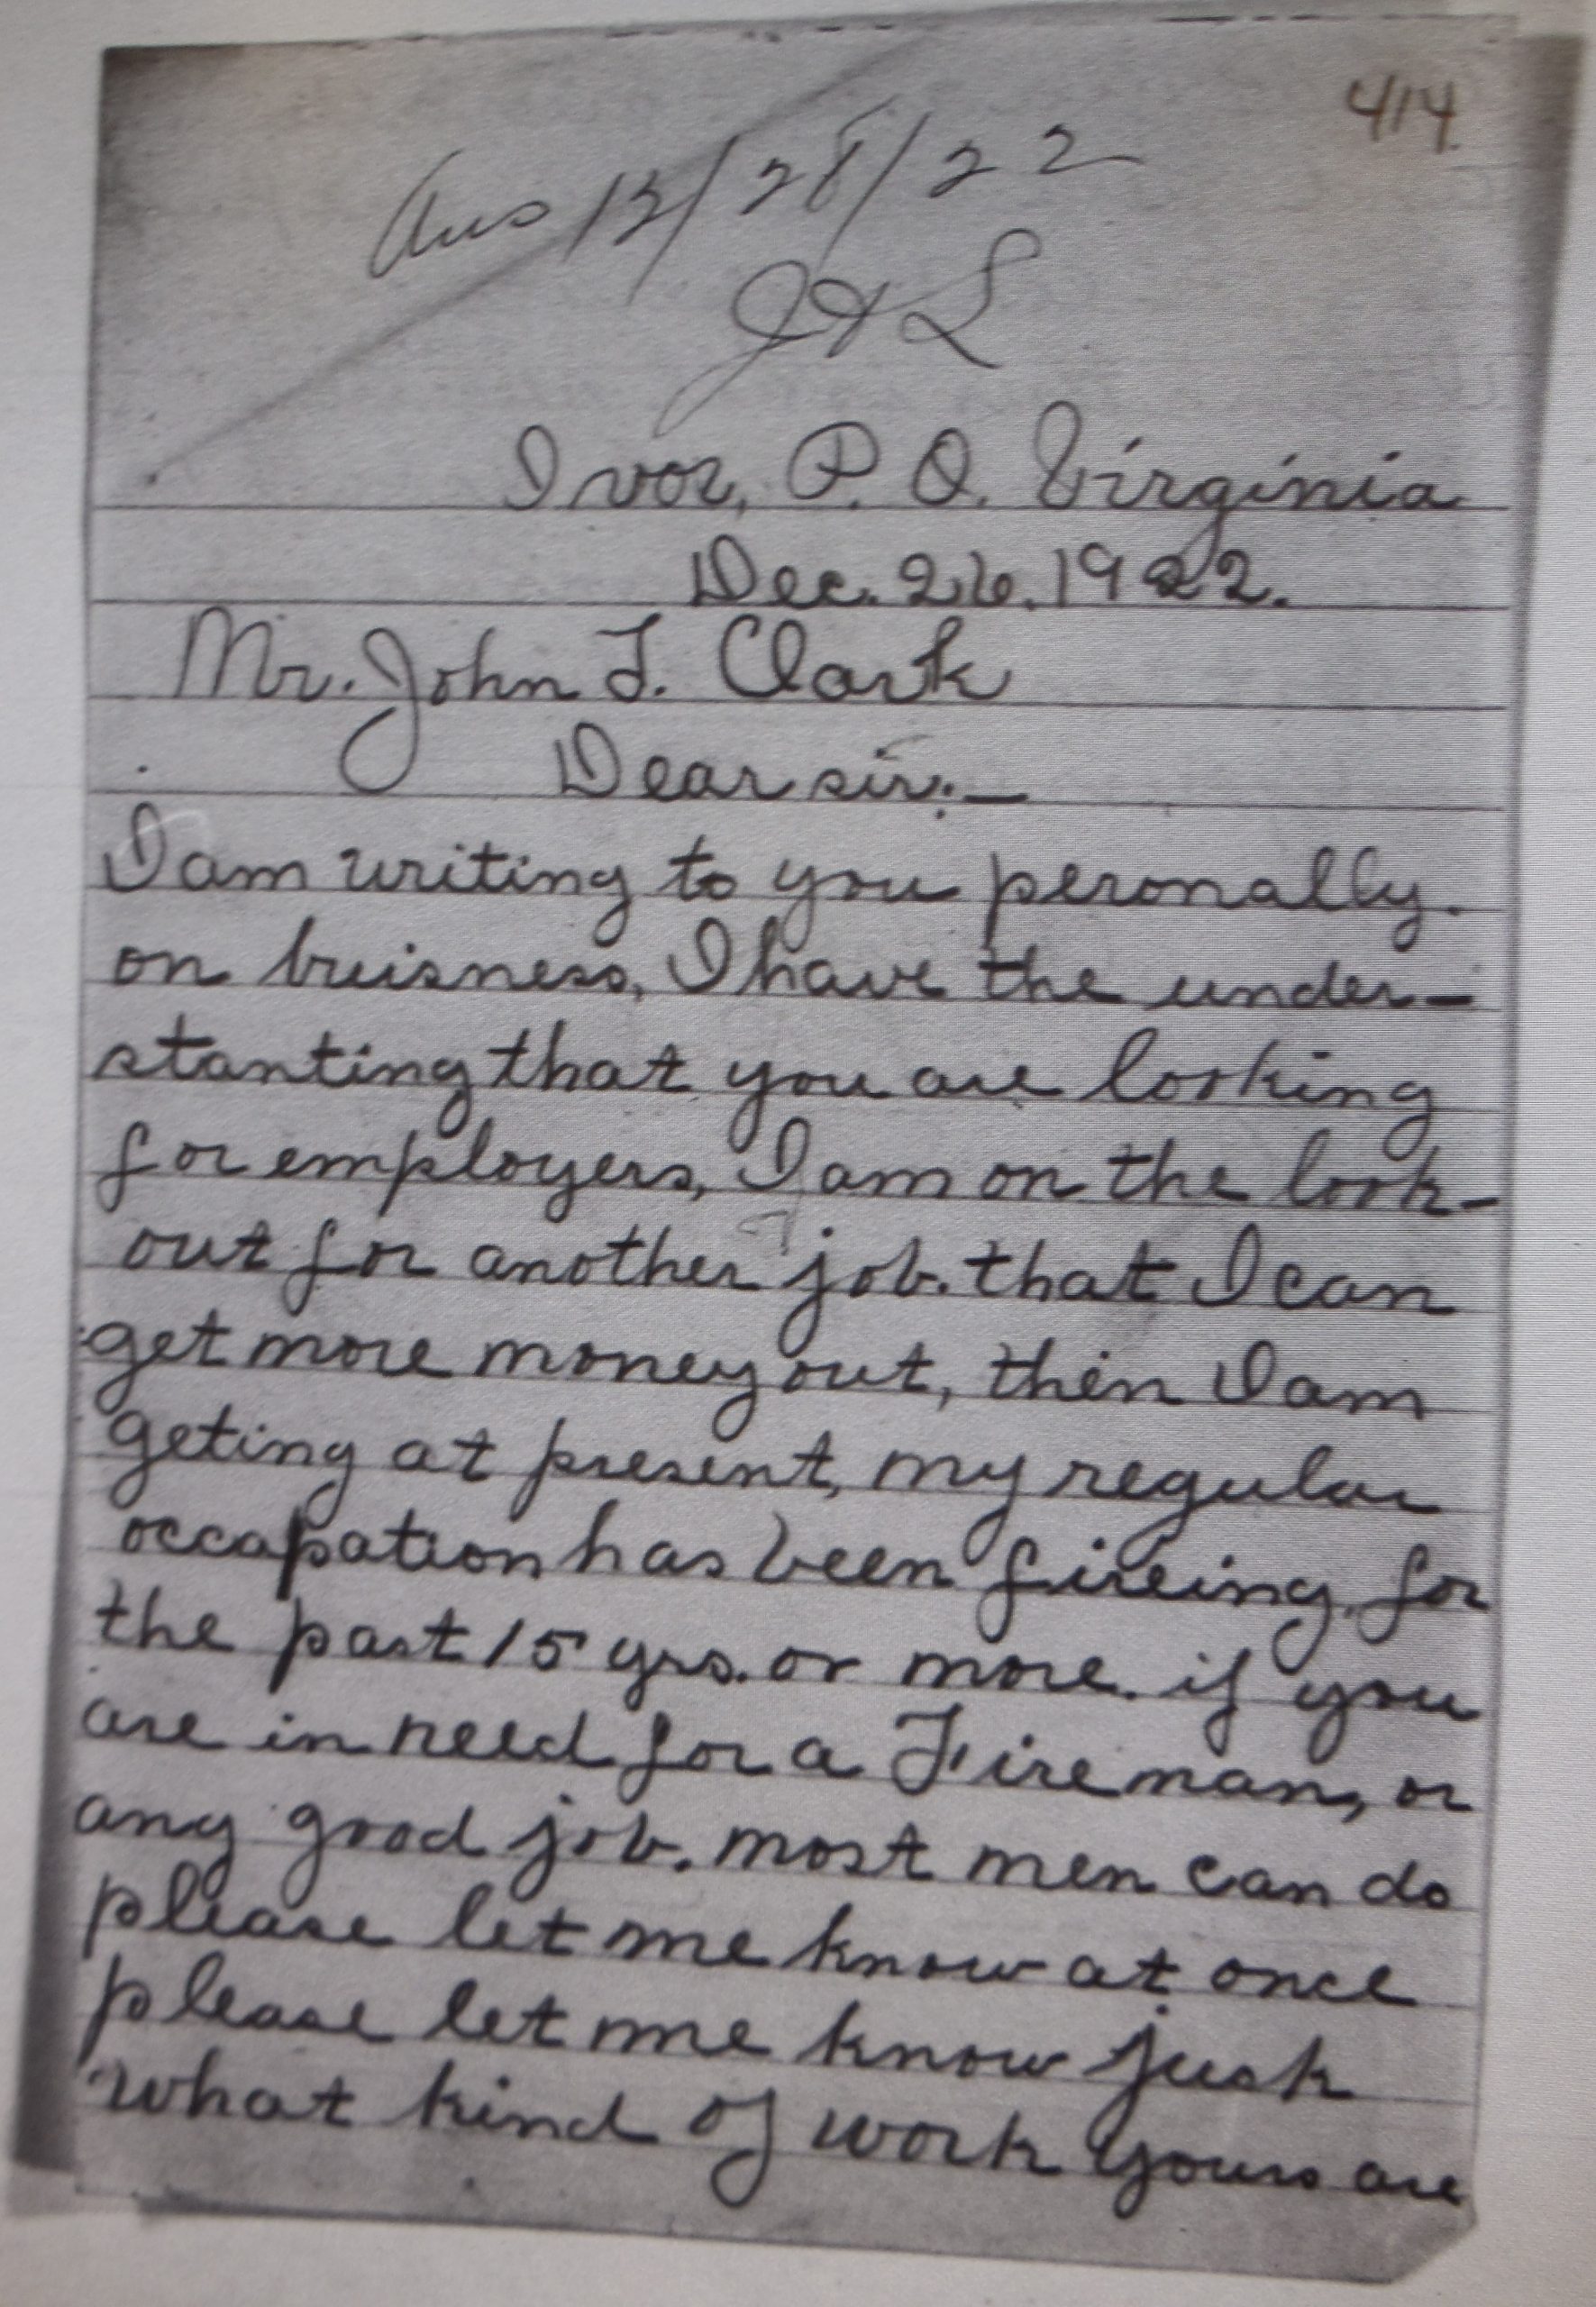 414.
Ans 12/28/22
Ivor, P. O. Virginia
Dec. 26. 1922.
Mr. John T. Clark
Dear sir:—
I am writing to you peronally.
on buisness, I have the under-
stanting that you are looking
for employers, I am on the look-
out for another job. that I can
get more money out, then I am
geting at present, my regular
occapation has been fireing. for
the past 15 yrs. or more. if you
are in need for a Fireman, or
any good job. most men can do
please let me know at once
please let me know just
what kind of work yours are